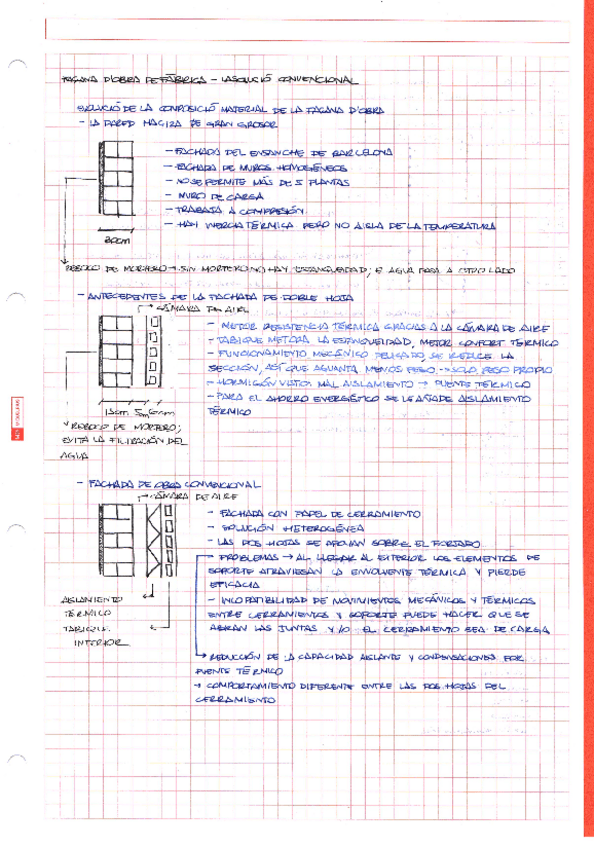 FAÇANA D'OBRA DE FÀBRICA - LA SOLUCIÓ CONVENCIONAL
EVOLUCIÓ DE LA COMPOSICIÓ MATERIAL DE LA FAÇANA D'OBRA
- LA PARED MACIZA DE GRAN GROSOR
- FACHADA DEL ENSANCHE DE BARCELONA
- FACHADA DE MUROS HOMOGÉNEOS
- NO SE PERMITE MÁS DE 5 PLANTAS
- MURO DE CARGA
- TRABAJA A COMPRESIÓN
- HAY INERCIA TÉRMICA PERO NO AISLA DE LA TEMPERATURA
30cm
REBOCO DE MORTERO → SIN MORTERO NO HAY ESTANQUEIDAD; E AGUA PASA A OTRO LADO
- ANTECEDENTES DE LA FACHADA DE DOBLE HOJA
CÁMARA DE AIRE
- MEJOR RESISTENCIA TÉRMICA GRACIAS A LA CÁMARA DE AIRE
- TABIQUE MEJORA LA ESTANQUEIDAD, MEJOR CONFORT TÉRMICO
- FUNCIONAMIENTO MECÁNICO DELICADO, SE REDUCE LA
SECCIÓN, ASÍ QUE AGUANTA MENOS PESO → SOLO PESO PROPIO
- HORMIGÓN VISTO: MAL AISLAMIENTO → PUENTE TÉRMICO
- PARA EL AHORRO ENERGÉTICO SE LE AÑADE AISLAMIENTO
TÉRMICO
15cm 5cm 6cm
REBOCO DE MORTERO;
EVITA LA FILTRACIÓN DEL
AGUA
- FACHADA DE OBRA CONVENCIONAL
CÁMARA DE AIRE
- FACHADA CON PAPEL DE CERRAMIENTO
- SOLUCIÓN HETEROGÉNEA
- LAS DOS HOJAS SE APOYAN SOBRE EL FORJADO
- PROBLEMAS → AL LLEGAR AL EXTERIOR LOS ELEMENTOS DE
SOPORTE ATRAVIESAN LA ENVOLVENTE TÉRMICA Y PIERDE
EFICACIA
- INCOPATIBILIDAD DE MOVIMIENTOS MECÁNICOS Y TÉRMICOS
ENTRE CERRAMIENTOS Y SOPORTE PUEDE HACER QUE SE
ABRAN LAS JUNTAS Y/O EL CERRAMIENTO SEA DE CARGA
AISLAMIENTO
TÉRMICO
TABIQUE
INTERIOR
→ REDUCCIÓN DE LA CAPACIDAD AISLANTE Y CONDENSACIONES POR
PUENTE TÉRMICO
→ COMPORTAMIENTO DIFERENTE ENTRE LAS DOS HOJAS DEL
CERRAMIENTO